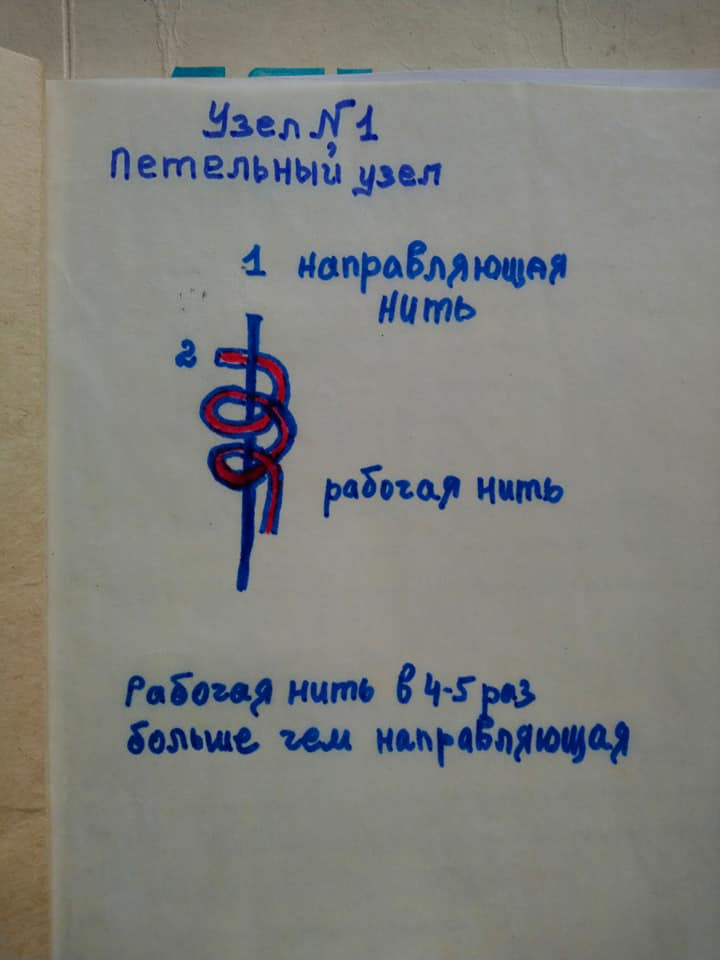 Узел №1
Петельный узел
1 направляющая
нить
2
рабочая нить
Рабочая нить в 4-5 раз
больше чем направляющая